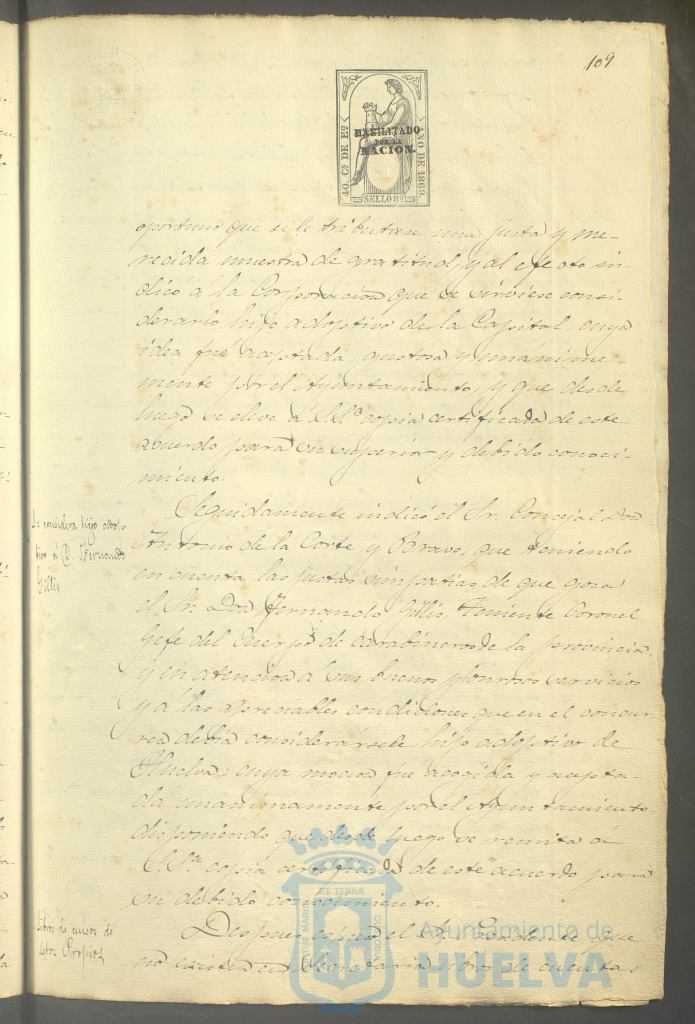 109
HABILITADO
POR LA
NACION.
40. Cs DE Eo.
AÑO DE 1869.
SELLO 8º
oportuno que se le tributase una justa y me-
recida muestra de gratitud, y al efecto in-
dicó á la Corporacion que se sirviese consi-
derarlo hijo adoptivo de la Capital, cuya
idea fué aceptada, gustosa y unanime-
mente por el Ayuntamiento, y que desde
luego se eleve á S.Sª copia certificada de este
acuerdo para su superior y debido conoci-
miento.
Se considera hijo adop-
tivo á D. Fernando
Gillis
Seguidamente indicó el Sr. Concejal Don
Antonio de la Corte y Bravo, que teniendo
en cuenta las justas simpatías de que goza
el Sr. Don Fernando Gillis, Teniente Coronel
Gefe del Cuerpo de carabineros de la provincia,
y en atencion á sus buenos y honrosos servicios
y á las apreciables condiciones que en el concur-
ren debia considerársele hijo adoptivo de
Huelva; cuya mocion fué acogida y acepta-
da unanimamente por el Ayuntamiento
disponiendo que desde luego se remita á
S.Sª copia certificada de este acuerdo para
su debido conocimiento.
Libros de de
Propios
Despues espuso el Sr. que
no existen en Secretaria libros de cuentas
PORTUS MARIS ET TERRÆ CUSTODIO
Ayuntamiento de
HUELVA